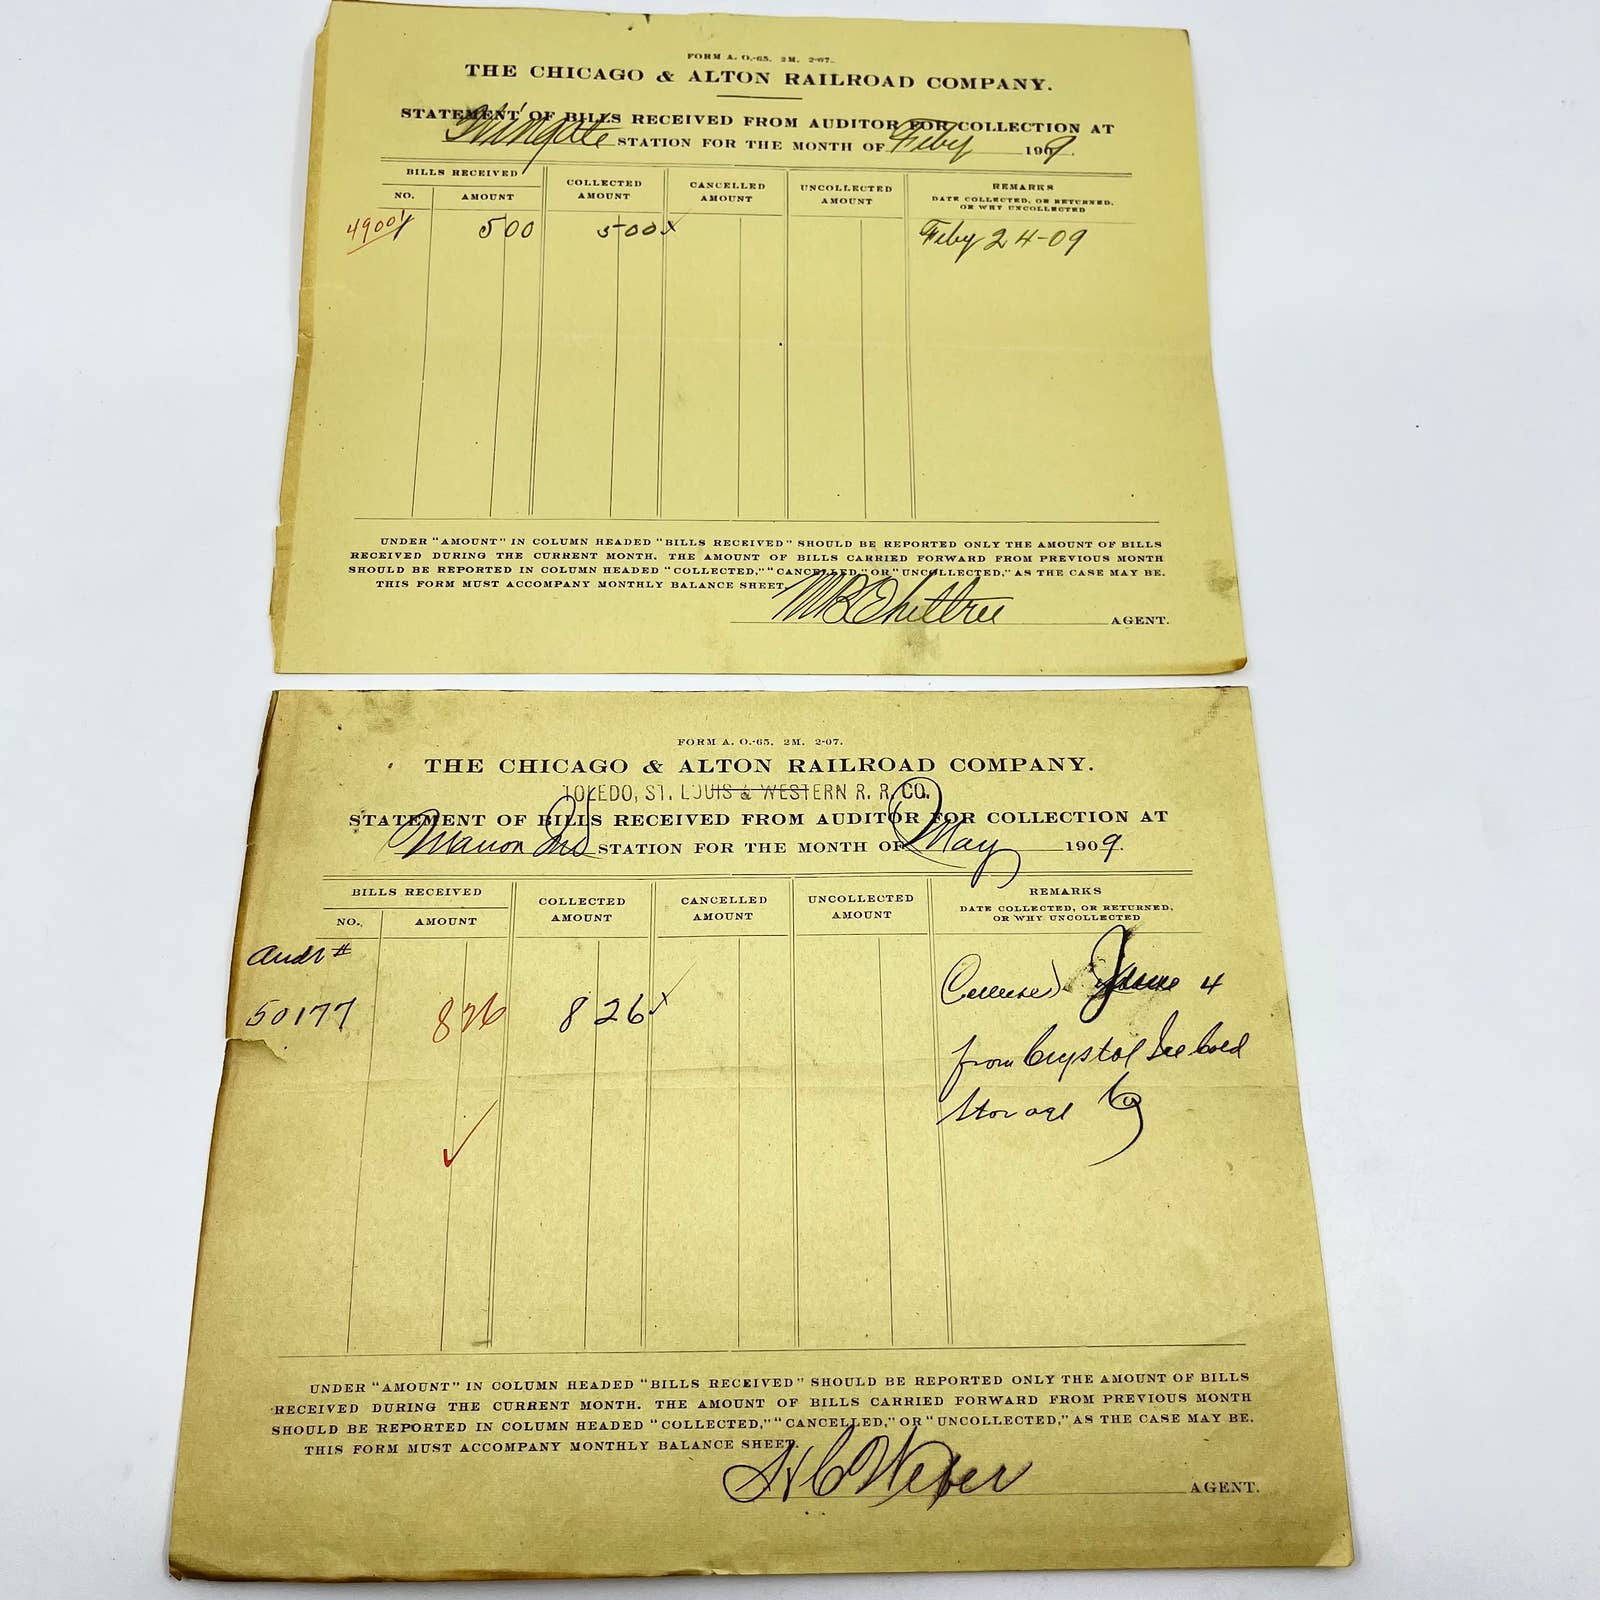 FORM A. O.-65. 2M. 2-07.
THE CHICAGO & ALTON RAILROAD COMPANY.
STATEMENT OF BILLS RECEIVED FROM AUDITOR FOR COLLECTION AT
Wingate STATION FOR THE MONTH OF Feby 1909.
BILLS RECEIVED
NO. AMOUNT
COLLECTED AMOUNT
CANCELLED AMOUNT
UNCOLLECTED AMOUNT
REMARKS
DATE COLLECTED, OR RETURNED,
OR WHY UNCOLLECTED
500 500 Feby 24-09
UNDER "AMOUNT" IN COLUMN HEADED "BILLS RECEIVED" SHOULD BE REPORTED ONLY THE AMOUNT OF BILLS
RECEIVED DURING THE CURRENT MONTH. THE AMOUNT OF BILLS CARRIED FORWARD FROM PREVIOUS MONTH
SHOULD BE REPORTED IN COLUMN HEADED "COLLECTED," "CANCELLED," OR "UNCOLLECTED," AS THE CASE MAY BE.
THIS FORM MUST ACCOMPANY MONTHLY BALANCE SHEET.
AGENT.
FORM A. O.-65. 2M. 2-07.
THE CHICAGO & ALTON RAILROAD COMPANY.
TOLEDO, ST. LOUIS & WESTERN R. R. CO.
STATEMENT OF BILLS RECEIVED FROM AUDITOR FOR COLLECTION AT
Marion Ind STATION FOR THE MONTH OF May 1909.
BILLS RECEIVED
NO. AMOUNT
COLLECTED AMOUNT
CANCELLED AMOUNT
UNCOLLECTED AMOUNT
REMARKS
DATE COLLECTED, OR RETURNED,
OR WHY UNCOLLECTED
Audr #
50177 826 826 June 4
from Crystal Ice Cold
Storage Co
UNDER "AMOUNT" IN COLUMN HEADED "BILLS RECEIVED" SHOULD BE REPORTED ONLY THE AMOUNT OF BILLS
RECEIVED DURING THE CURRENT MONTH. THE AMOUNT OF BILLS CARRIED FORWARD FROM PREVIOUS MONTH
SHOULD BE REPORTED IN COLUMN HEADED "COLLECTED," "CANCELLED," OR "UNCOLLECTED," AS THE CASE MAY BE.
THIS FORM MUST ACCOMPANY MONTHLY BALANCE SHEET.
H C Weber AGENT.